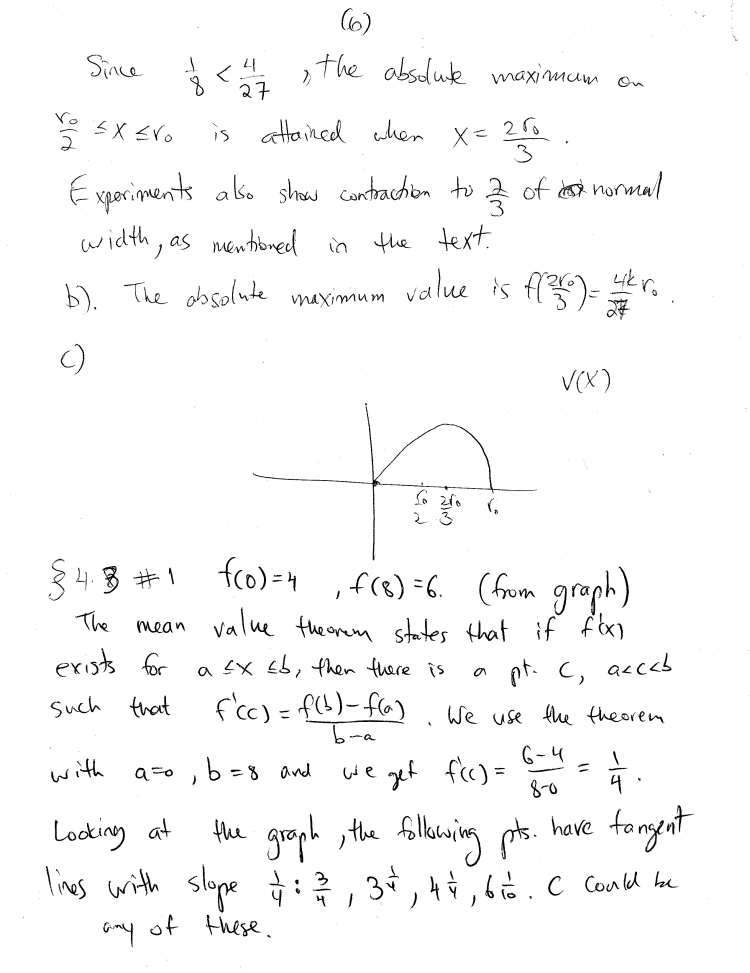 (6)
Since 1/8 < 4/27, the absolute maximum on
r₀/2 ≤ x ≤ r₀ is attained when x = 2r₀/3.
Experiments also show contraction to 2/3 of normal
width, as mentioned in the text.
b). The absolute maximum value is f(2r₀/3) = 4k/27 r₀.
c)
V(X)
r₀/2 2r₀/3 r₀
§ 4.3 #1 f(0)=4, f(8)=6. (from graph)
The mean value theorem states that if f'(x)
exists for a ≤ x ≤ b, then there is a pt. C, a<c<b
such that f'(c) = f(b)-f(a)/b-a. We use the theorem
with a=0, b=8 and we get f'(c) = 6-4/8-0 = 1/4.
Looking at the graph, the following pts. have tangent
lines with slope 1/4: 3/4, 3 1/4, 4 1/4, 6 1/10. C could be
any of these.